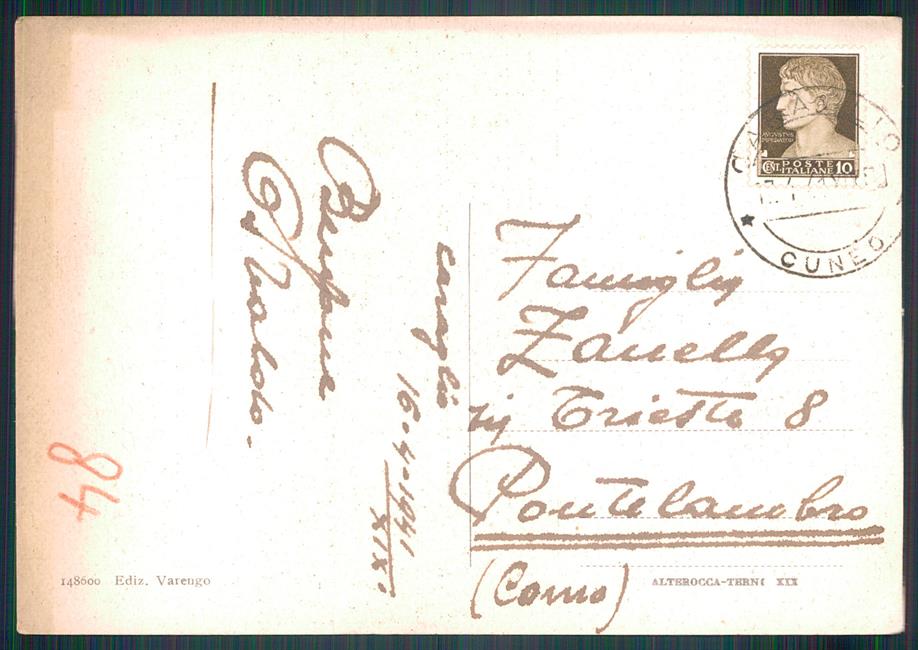 Caraglio
16.4.1941
XIX°
Famiglia
Zanella
via Trieste 8
Pontelambro
(Como)
AUGUSTUS
IMPERATOR
CENT. POSTE
ITALIANE 10
CARAGLIO
CUNEO
84
148600 Ediz. Varengo
ALTEROCCA-TERNI XIX